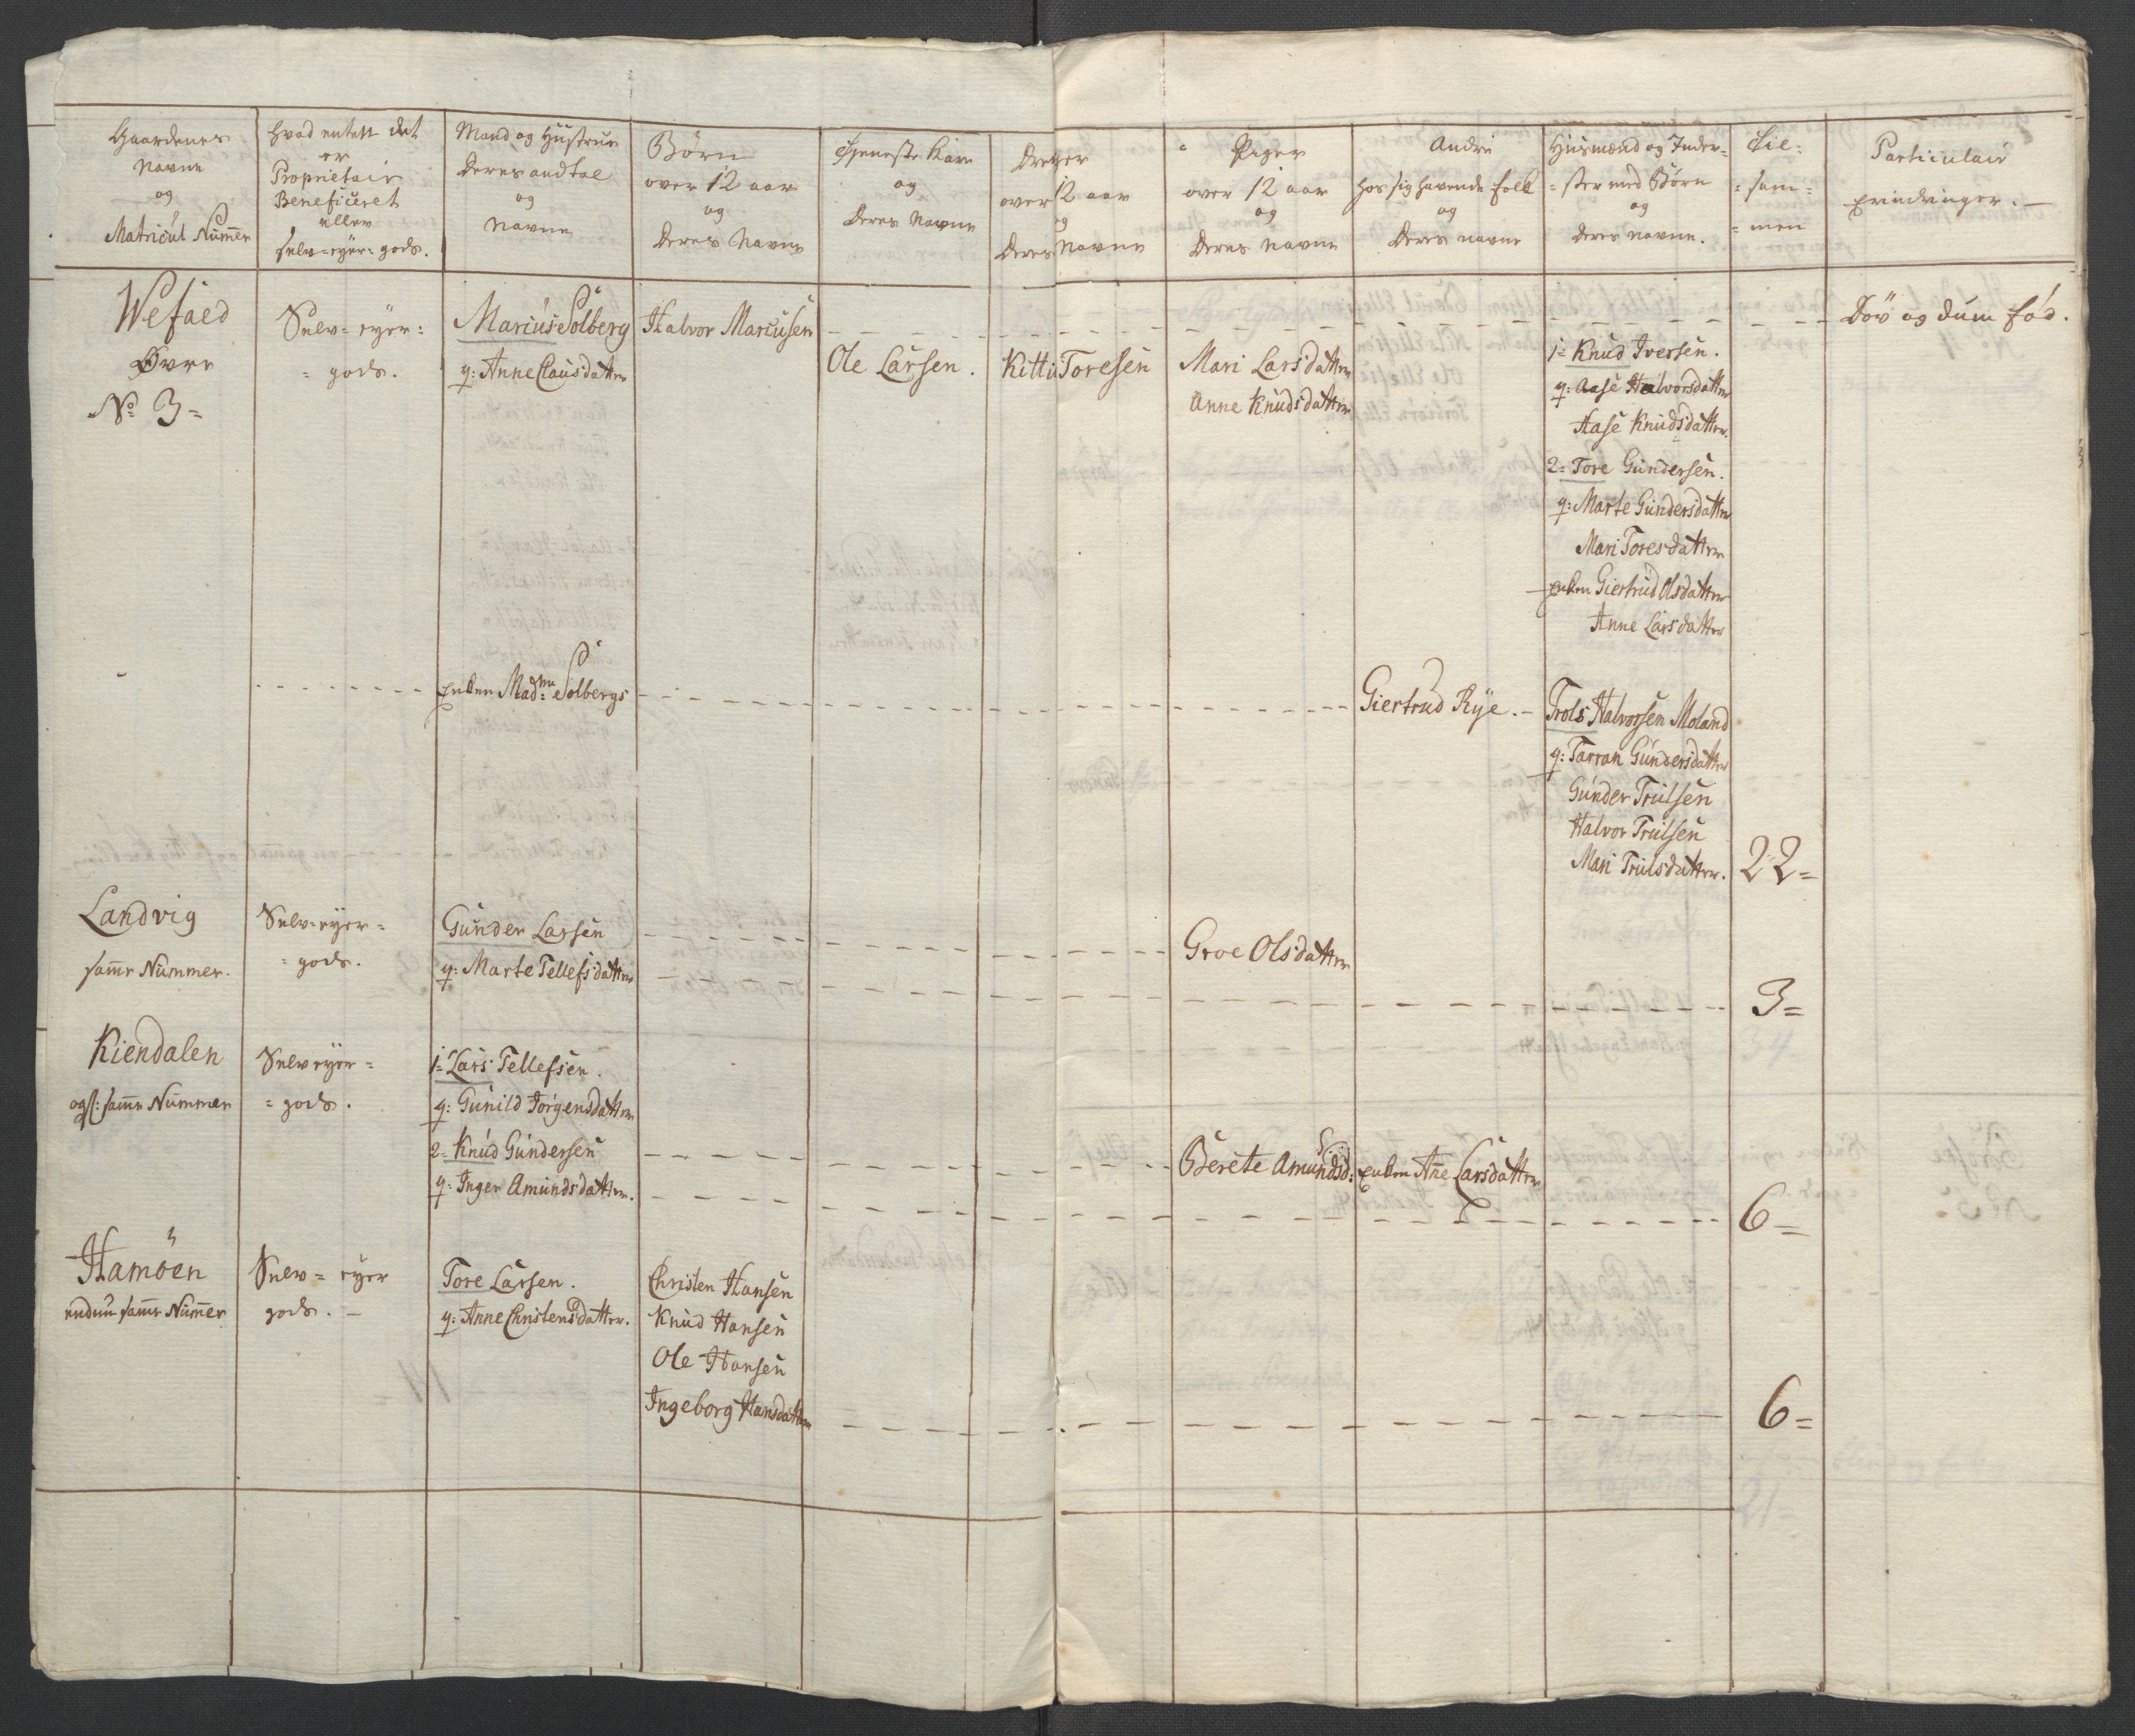 Gaardenes
Navne
og
Matricul Nummer
hvad enten det
er
Proprietair
Beneficeret
eller
selv=eyer=gods.
Mand og Hustrue
Deres andtal
og
Navne
Børn
over 12 aar
og
Deres Navne
Tieneste Kare
og
Deres Navne
Drenger
over 12 aar
og
Deres Navne
Piger
over 12 aar
og
Deres navne
Andre
hos sig havende folk
og
Deres navne
Huusmænd og Inder=
=ster med Børn
og
Deres navne.
Til=
=sam=
=men
Particulair
Erindringer.
Wefaed
Øvre
No 3=
Selv=eyer=
=gods.
Marcus Solberg
q: Anne Clausdatter
Halvor Marcusen
Døv og dum fød.
Ole Larsen.
Kittil Toresen
Mari Larsdatter
Anne Knudsdatter
1= Knud Iversen.
q: Aase Halvorsdatter
Aase Knudsdatter.
2= Tore Gundersen.
q: Marte Gundersdatter
Mari Toresdatter
Enken Giertrud Olsdatter
Anne Larsdatter
Enken Madme Solbergs
Giertrud Rye.
Trols Halvorsen Moland
q: Tarran Gundersdatter
Gunder Trulsen
Halvor Trulsen
Mari Trulsdatter.
22=
Landvig
samme Nummer.
Selv=eyer=
=gods.
Gunder Larsen
q: Marte Tellefsdatter
Groe Olsdatter
3=
Kiendalen
ogs: samme Nummer
Selveyer=
=gods.
1= Lars Tellefsen.
q: Gunild Jörgensdatter
2= Knud Gundersen
q: Inger Amundsdatter.
Berete Amundsd:
Enken Anne Larsdatter
6=
Hamöen
endnu samme Nummer
Selv=eyer
gods.
Tore Larsen.
q: Anne Christensdatter.
Christen Hansen
Knud Hansen
Ole Hansen
Ingeborg Hansdatter
6=